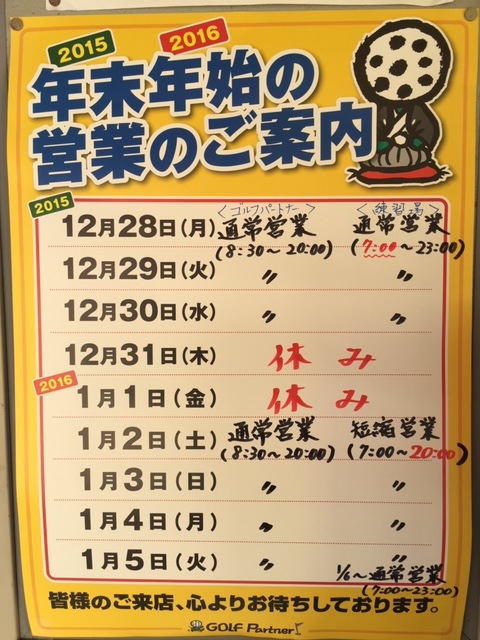 2015 2016
年末年始の
営業のご案内
<ゴルフパートナー> <練習場>
2015
12月28日(月) 通常営業 通常営業
(8:30〜20:00) (7:00〜23:00)
12月29日(火) 〃 〃
12月30日(水) 〃 〃
12月31日(木) 休み
2016
1月1日(金) 休み
1月2日(土) 通常営業 短縮営業
(8:30〜20:00) (7:00〜20:00)
1月3日(日) 〃 〃
1月4日(月) 〃 〃
1月5日(火) 〃 〃
1/6〜通常営業
(7:00〜23:00)
皆様のご来店、心よりお待ちしております。
GOLF Partner